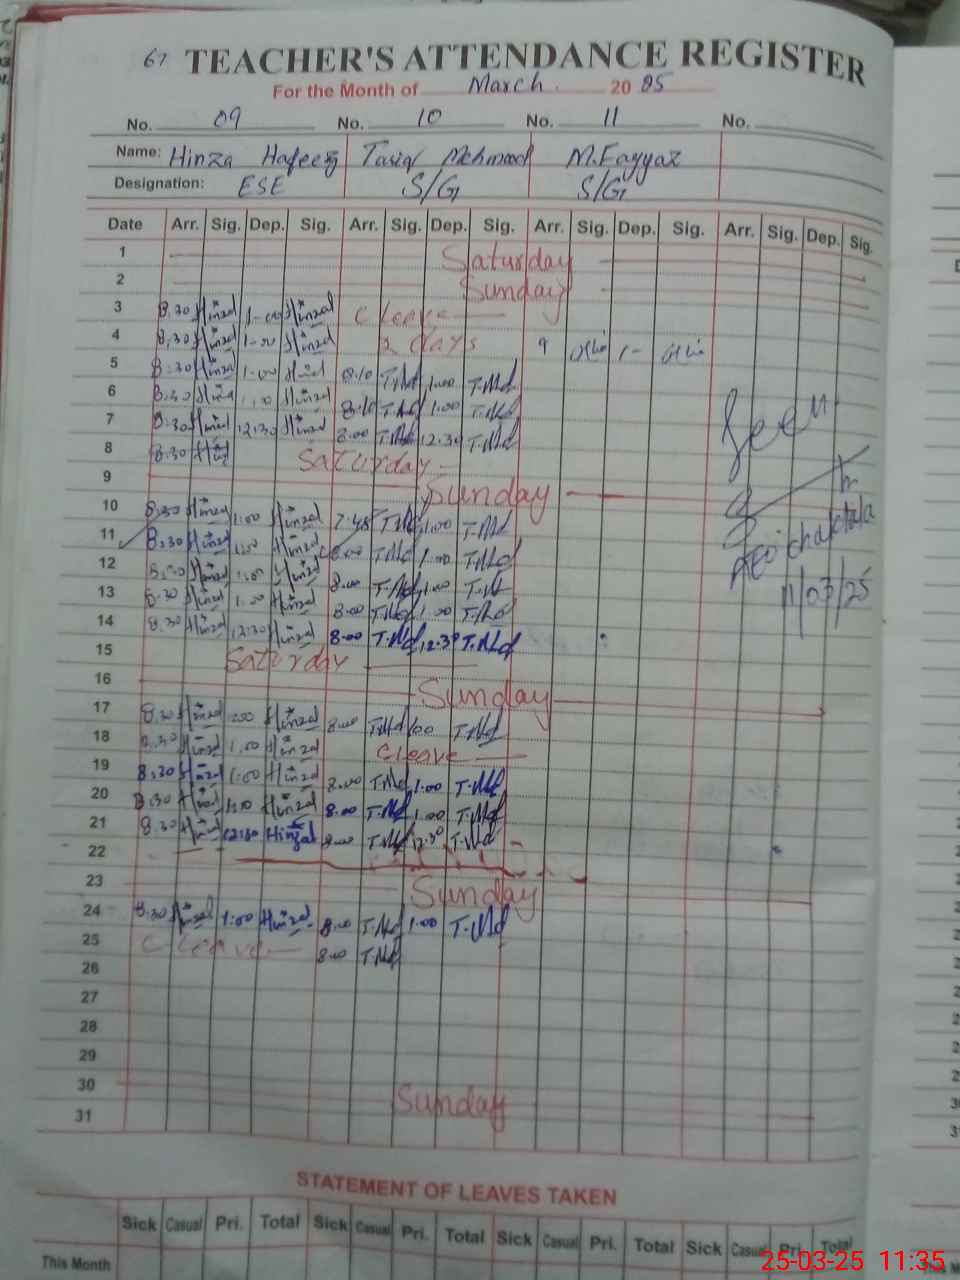 67 TEACHER'S ATTENDANCE REGISTER
For the Month of March. 20 25
No. 09 No. 10 No. 11 No.
Name: Hinza Hafeez Tariq Mehmood M.Fayyaz
Designation: ESE S/G S/G
Date Arr. Sig. Dep. Sig. Arr. Sig. Dep. Sig. Arr. Sig. Dep. Sig. Arr. Sig. Dep. Sig.
1 Saturday
2 Sunday
3 8.30 Hinza 1-00 Hinza C Leave
4 8.30 Hinza 1-00 Hinza 2 days 9 1-
5 8.30 Hinza 1.00 8.10 T.Md 1.00 T.Md
6 8.30 Hinza 1.00 Hinza 8.10 T.Md 1.00 T.Md
7 8.30 Hinza 12.30 Hinza 8.00 T.Md 12.30 T.Md
8 8.30 Saturday
9 Sunday
10 8.30 Hinza 1.00 Hinza 7.45 T.Md 1.00 T.Md
11 8.30 Hinza 1.00 Hinza 8.00 T.Md 1.00 T.Md
12 8.30 Hinza 1.00 Hinza 8.00 T.Md 1.00 T.Md
13 8.30 Hinza 1.00 Hinza 8.00 T.Md 1.00 T.Md
14 8.30 Hinza 12.30 Hinza 8.00 T.Md 12.30 T.Md
15 Saturday
16 Sunday
17 8.30 Hinza 1.00 Hinza 8.00 T.Md 1.00 T.Md
18 8.30 Hinza 1.00 Hinza C Leave
19 8.30 Hinza 1.00 Hinza 8.00 T.Md 1.00 T.Md
20 8.30 Hinza 1.00 Hinza 8.00 T.Md 1.00 T.Md
21 8.30 Hinza 12.30 Hinza 8.00 T.Md 12.30 T.Md
22
23 Sunday
24 8.30 Hinza 1.00 Hinza 8.00 T.Md 1.00 T.Md
25 C Leave 8.00 T.Md
26
27
28
29
30 Sunday
31
Seen
AEO
11/03/25
STATEMENT OF LEAVES TAKEN
Sick Casual Pri. Total Sick Casual Pri. Total Sick Casual Pri. Total Sick Casual Pri. Total
This Month
25-03-25 11:35